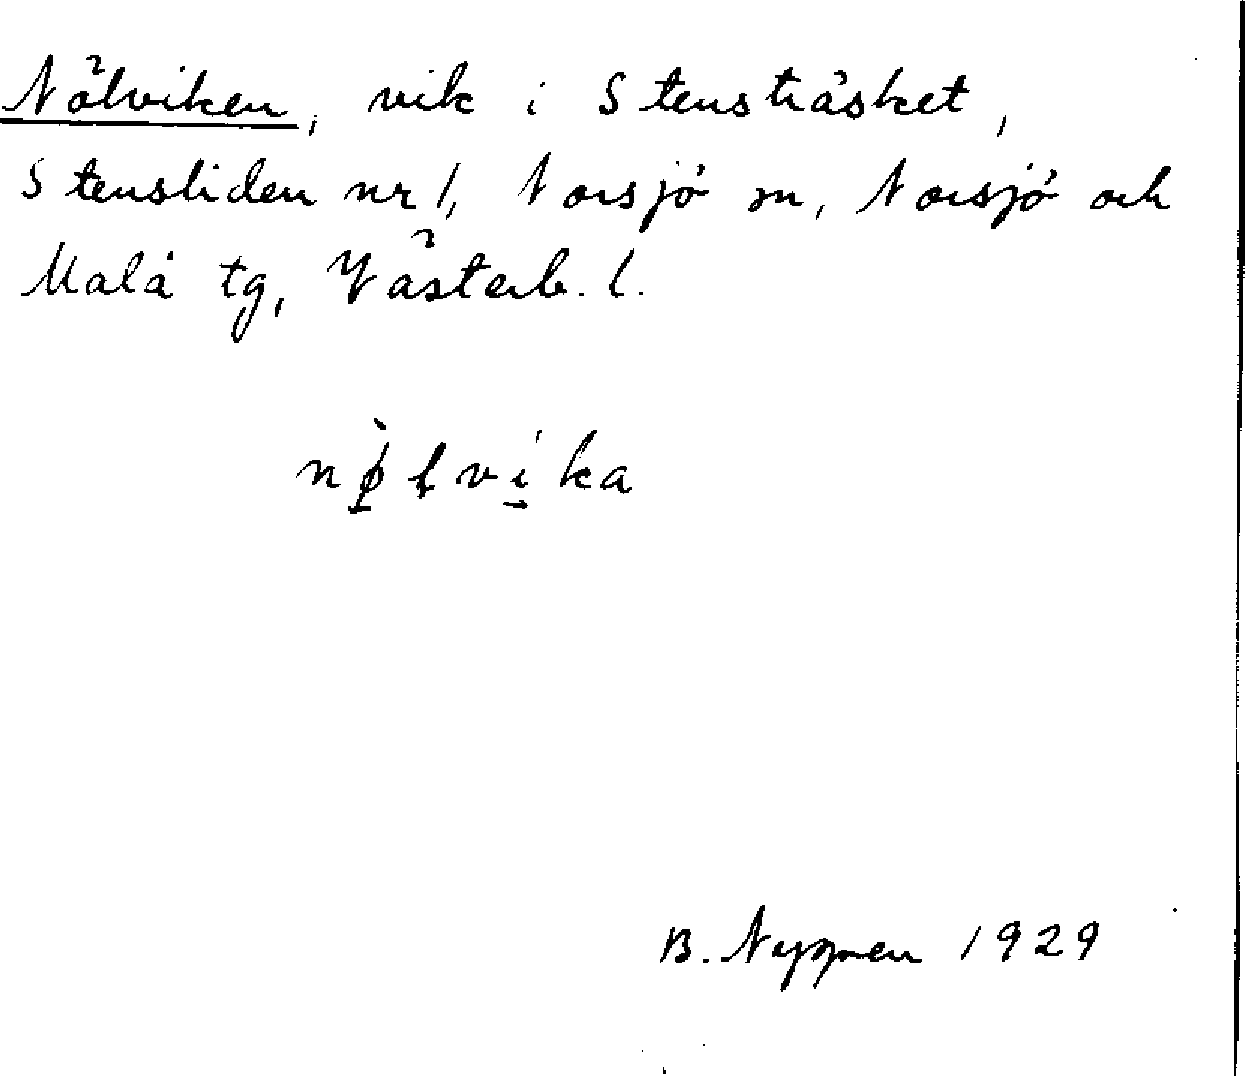 Nölviken, vik i Stensträsket,
Stensliden nr 1, Norsjö sn, Norsjö och
Malå tg, Västerb. l.
nø̀lvika
B. 1929